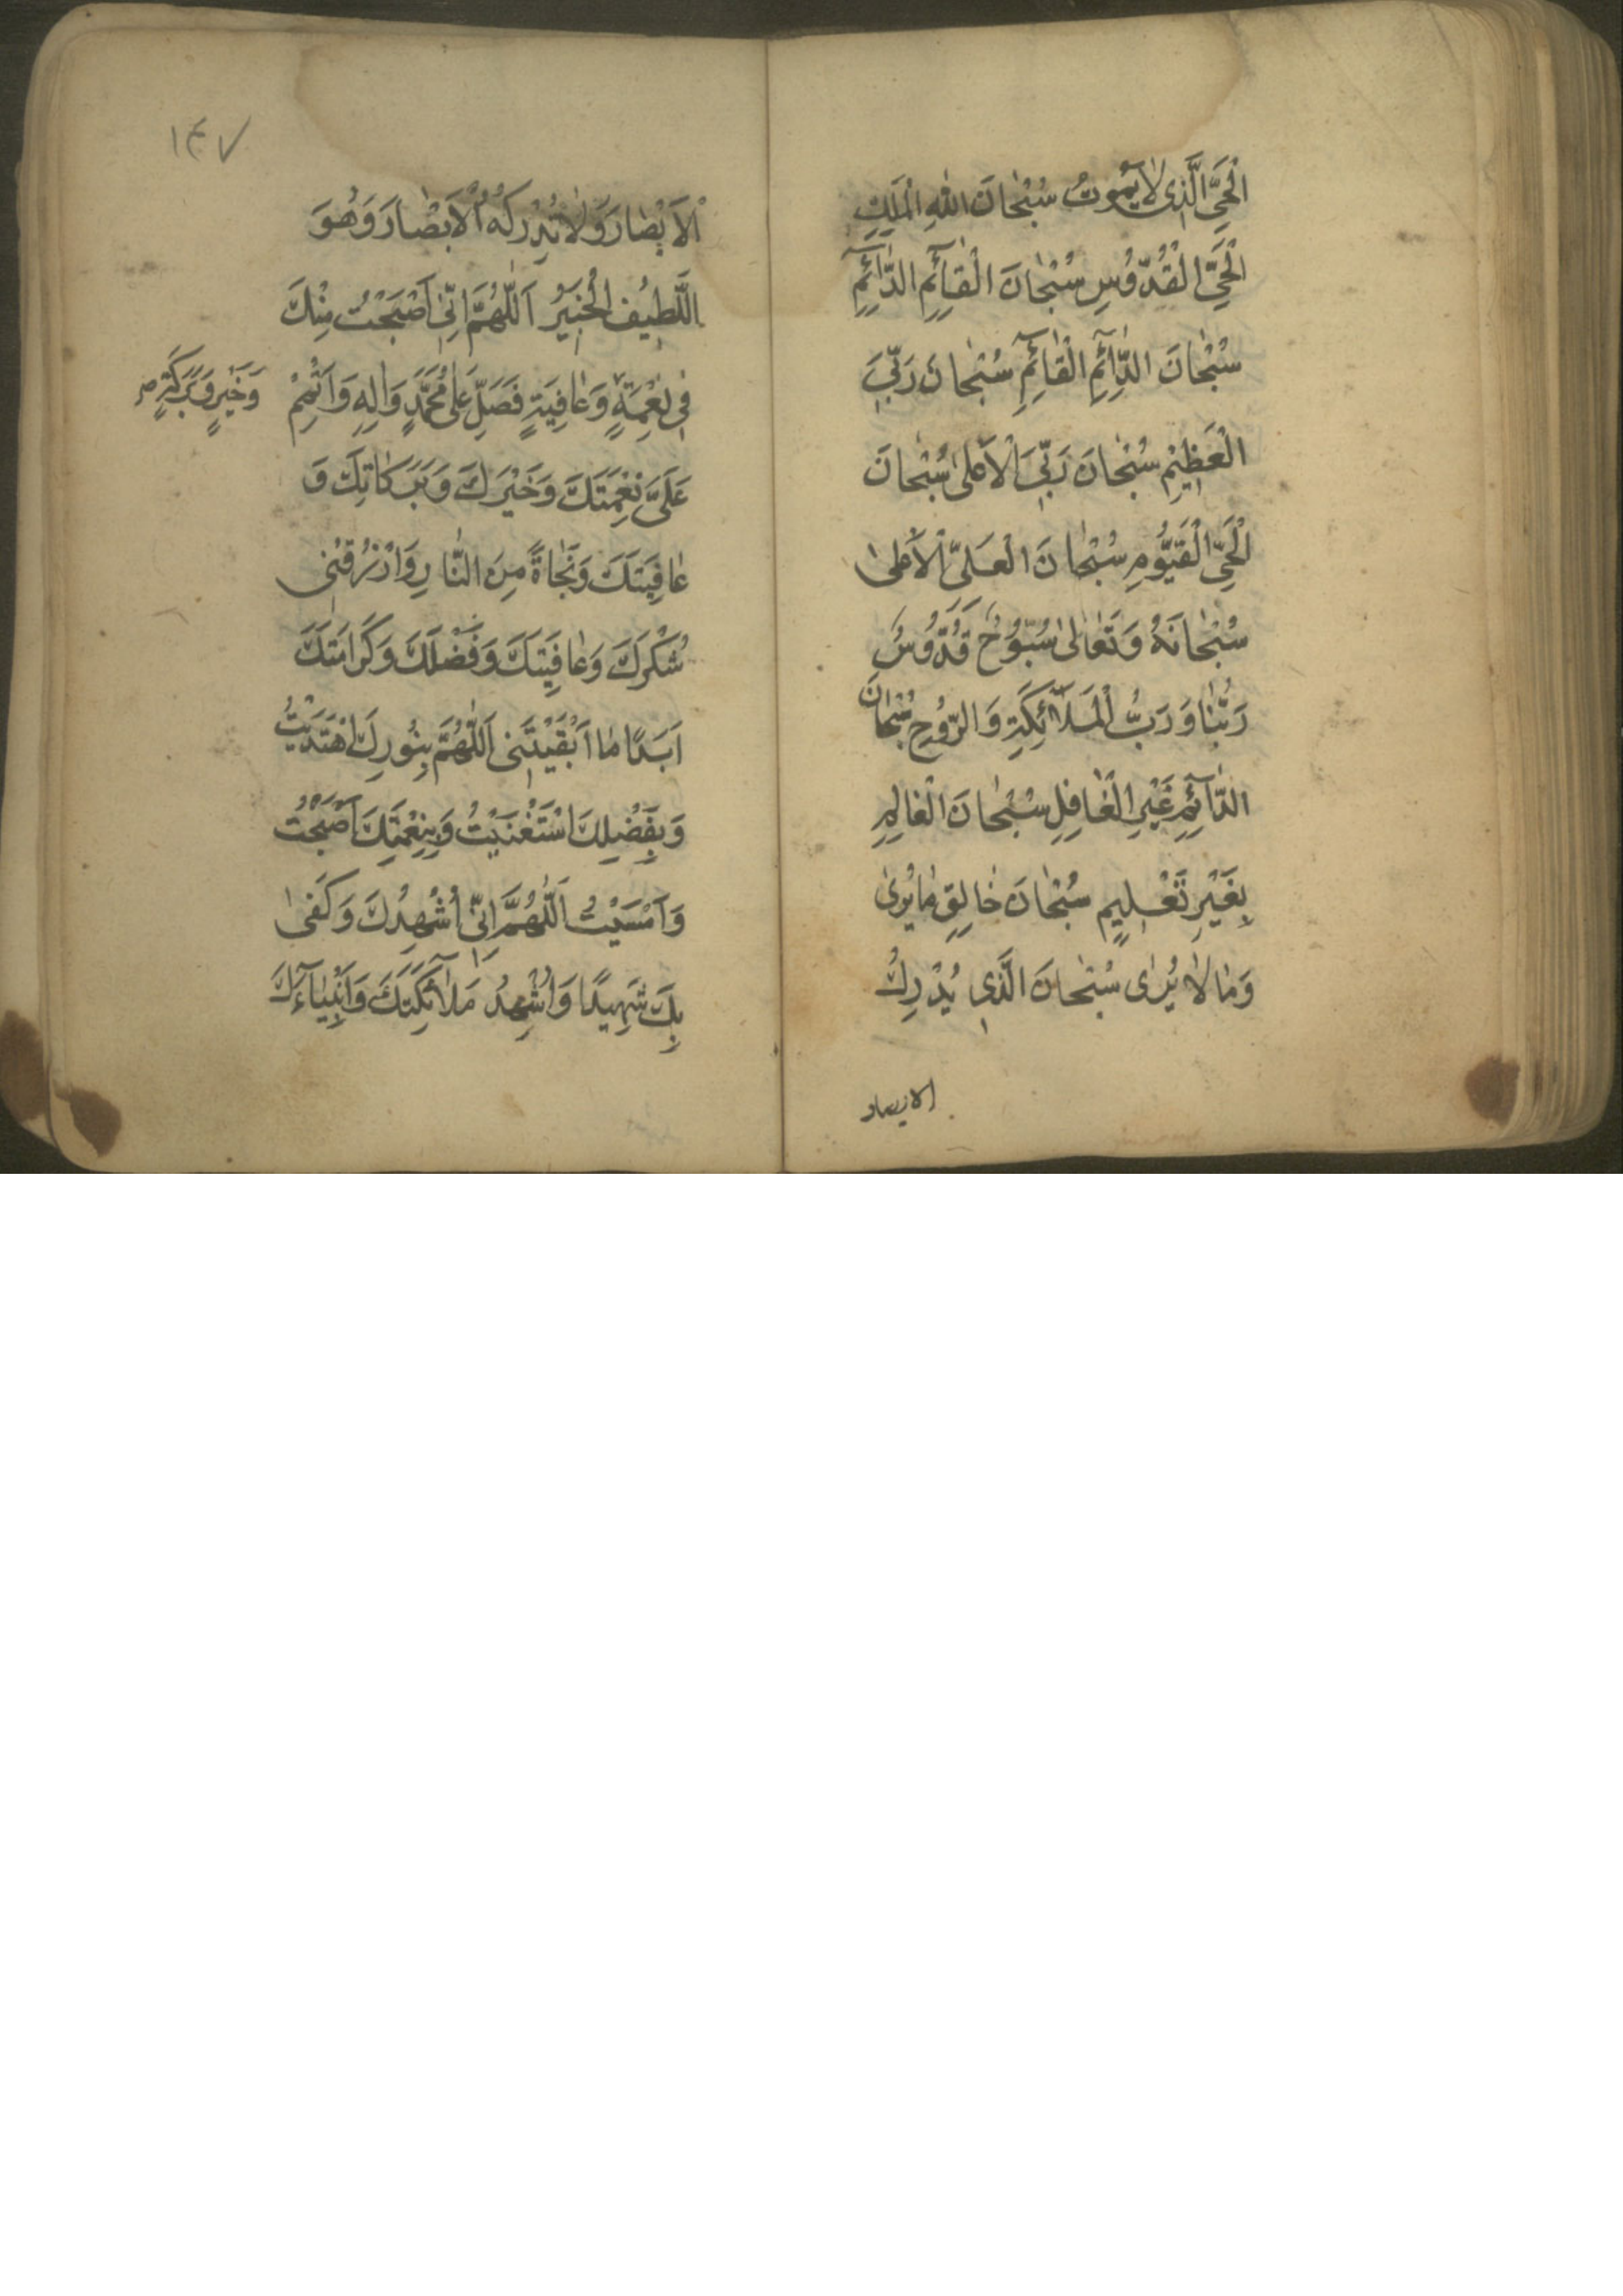 الْحَيِّ الَّذِی لٰا يَمُوتُ سُبْحٰانَ اللّٰهِ الْمَلِكِ
الْحَيِّ الْقُدُّوُسِ سُبْحٰانَ الْقٰآئِمِ الدّٰآئِمِ
سُبْحٰانَ الدّٰآئِمِ الْقٰآئِمِ سُبْحٰانَ رَبِّيَ
الْعَظِيْمِ سُبْحٰانَ رَبِّيَ الْأَعْلیٰ سُبْحٰانَ
الْحَيِّ الْقَيُّومِ سُبْحٰانَ الْعَلِیِّ الْأَعْلیٰ
سُبْحٰانَهُ وَ تَعٰالیٰ سُبُّوُحٌ قُدُّوُسٌ
رَبُّنٰا وَ رَبُّ الْمَلٰآئِكَةِ وَ الرُّوُحِ سُبْحٰانَ
الدّٰآئِمِ غَيْرِ الْغٰافِلِ سُبْحٰانَ الْعٰالِمِ
بِغَيْرِ تَعْلِيمٍ سُبْحٰانَ خٰالِقِ مٰا يُریٰ
وَ مٰا لٰا يُرٰی سُبْحٰانَ الَّذِي يُدْرِكُ
الابصار
١٤٧
الْأَبْصٰارَ وَ لٰا تُدْرِكُهُ الْأَبْصٰارُ وَ هُوَ
اللَّطِيُفُ الْخَبِيْرُ اَللّٰهُمَّ اِنِّیٰ اَصْبَحْتُ مِنْكَ
فِي نِعْمَةٍ وَ عٰافِيَةٍ فَصَلِّ عَلیٰ مُحَمَّدٍ وَ اٰلِهِ وَ اَتْمِمْ
وَ خَيْرٍ وَ بَرَكَةٍ صح
عَلَیَّ نِعْمَتَكَ وَ خَيْرَكَ وَ بَرَكٰاتِكَ وَ
عٰافِيَتَكَ وَ نَجٰاةً مِنَ النّٰارِ وَ ارْزُقْنٖی
شُكْرَكَ وَ عٰافِيَتَكَ وَ فَضْلَكَ وَ كَرٰامَتَكَ
اَبَدًا مٰا اَبْقَيْتَنٖی اَللّٰهُمَّ بِنُورِكَ اهْتَدَيْتُ
وَ بِفَضْلِكَ اسْتَغْنَيْتُ وَ بِنِعْمَتِكَ اَصْبَحْتُ
وَ اَمْسَيْتُ اَللّٰهُمَّ اِنّٖی اُشْهِدُكَ وَ كَفیٰ
بِكَ شَهِيدًا وَ اُشْهِدُ مَلٰآئِكَتَكَ وَ اَنْبِيٰآءَكَ